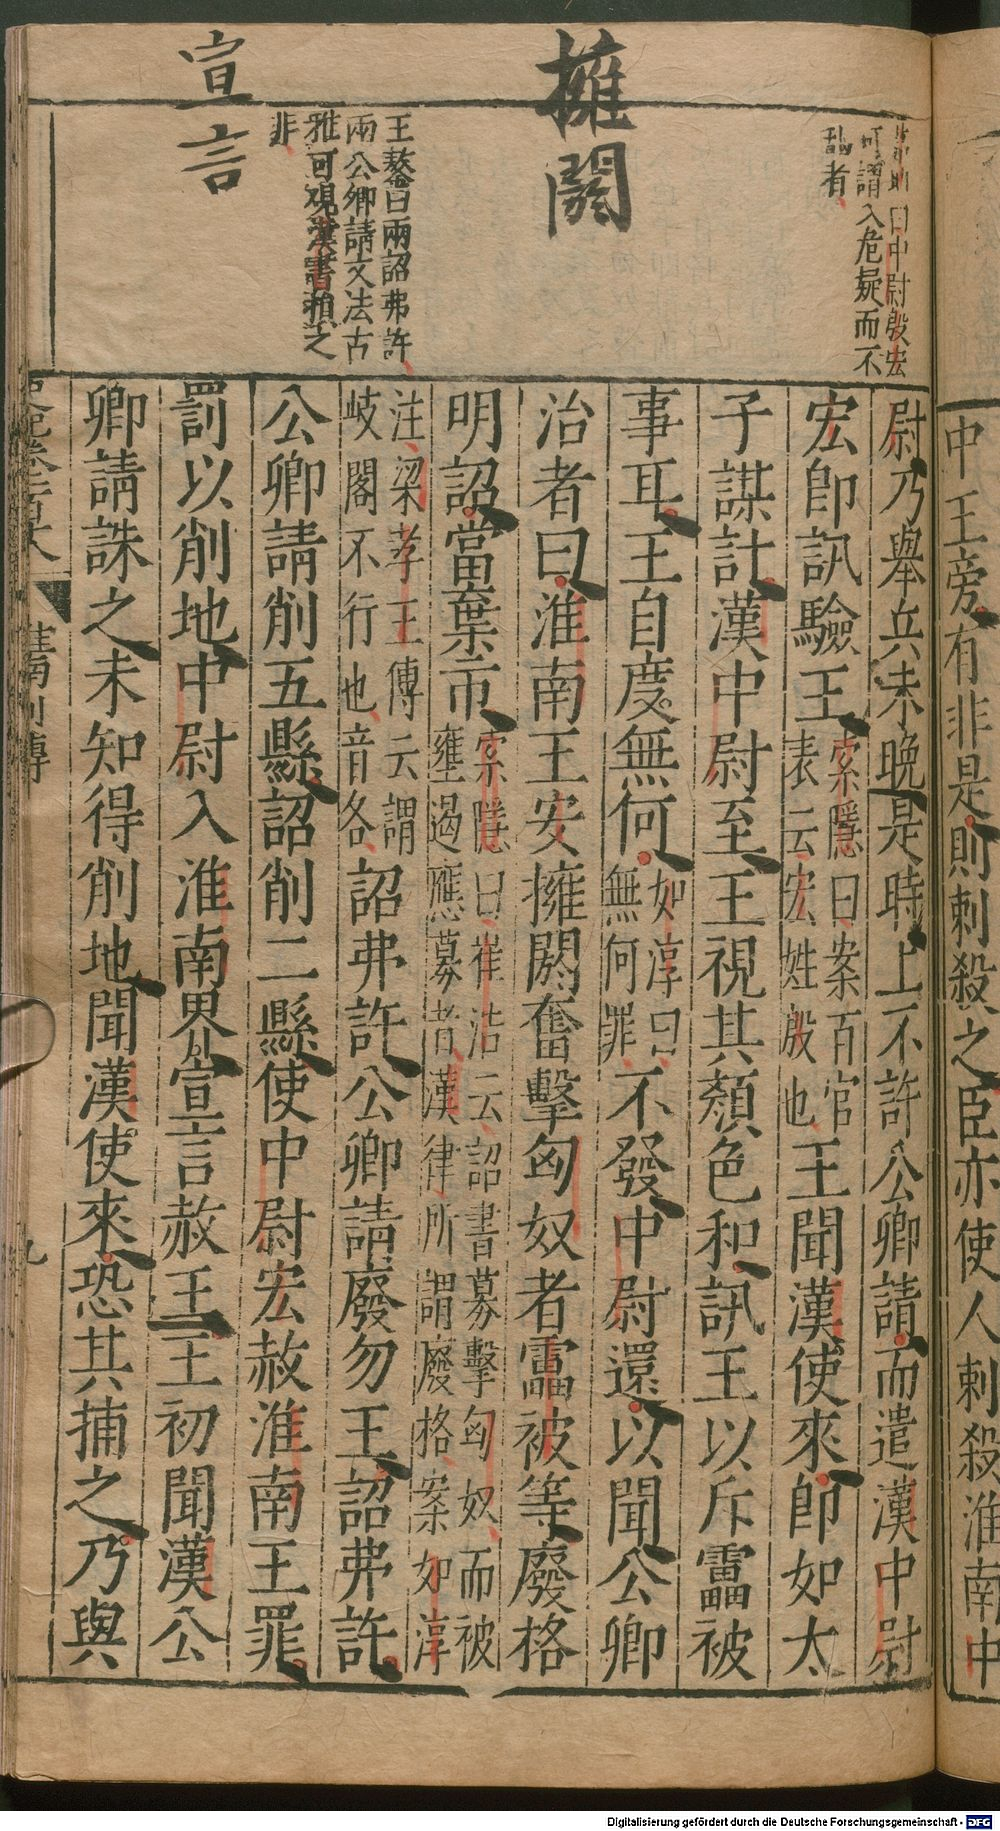 中王旁有非是則刺殺之臣亦使人刺殺淮南中
擁閼
宣言
曰中尉殷宏
可謂入危疑而不
亂者
王鏊曰兩詔弗許
兩公卿請文法古
雅可観漢書損之
非
尉乃舉兵未晚是時上不許公卿請而遣漢中尉
宏即訊驗王
索隱曰案百官
表云宏姓殷也
王聞漢使來即如太
子謀計漢中尉至王視其顏色和訊王以斥雷被
事耳王自度無何
如淳曰
無何罪
不發中尉還以聞公卿
治者曰淮南王安擁閼奮擊匈奴者雷被等廢格
明詔當棄市
索隱曰崔浩云詔書募擊匈奴而被
壅遏應募者漢律所謂廢格案如淳
注梁孝王傳云謂
歧閣不行也音各
詔弗許公卿請廢勿王詔弗許
公卿請削五縣詔削二縣使中尉宏赦淮南王罪
罰以削地中尉入淮南界宣言赦王王初聞漢公
卿請誅之未知得削地聞漢使來恐其捕之乃與
九
Digitalisierung gefördert durch die Deutsche Forschungsgemeinschaft - DFG